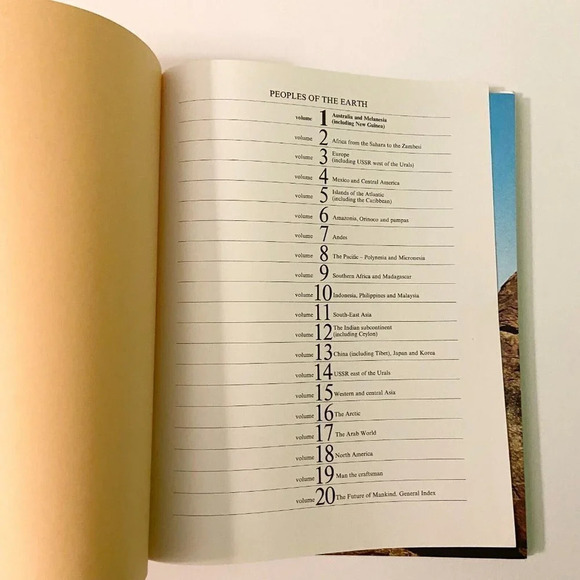 PEOPLES OF THE EARTH
volume 1 Australia and Melanesia
(including New Guinea)
volume 2 Africa from the Sahara to the Zambesi
volume 3 Europe
(including USSR west of the Urals)
volume 4 Mexico and Central America
volume 5 Islands of the Atlantic
(including the Caribbean)
volume 6 Amazonia, Orinoco and pampas
volume 7 Andes
volume 8 The Pacific – Polynesia and Micronesia
volume 9 Southern Africa and Madagascar
volume 10 Indonesia, Philippines and Malaysia
volume 11 South-East Asia
volume 12 The Indian subcontinent
(including Ceylon)
volume 13 China (including Tibet), Japan and Korea
volume 14 USSR east of the Urals
volume 15 Western and central Asia
volume 16 The Arctic
volume 17 The Arab World
volume 18 North America
volume 19 Man the craftsman
volume 20 The Future of Mankind. General Index